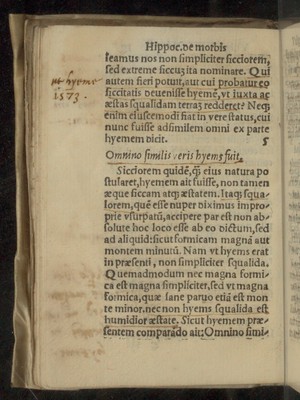 Hippoc. de morbis
leamus nos non simpliciter sicciorem,
sed extreme siccũ ita nominare. Qui
autem fieri potuit, aut cui probatur eo
siccitatis deuenisse hyemẽ, vt iuxta ac
æstas squalidam terrã redderet? Neq;
enim eiuscemodi fiat in vere status, cui
nunc fuisse adsimilem omni ex parte
hyemem dicit. 5
ut hyeme
1573.
Omnino similis veris hyems fuit.
Sicciorem quidẽ, ꝙ eius natura po
stularet, hyemem ait fuisse, non tamen
æque siccam atq; æstatem. Itaq; squa-
lorem, quẽ esse nuper diximus impro-
prie vsurpatũ, accipere par est non ab-
solute hoc loco esse ab eo dictum, sed
ad aliquid: sicut formicam magnã aut
montem minutũ. Nam vt hyems erat
in præsenti, non simpliciter squalida.
Quemadmodum nec magna formi-
ca est magna simpliciter, sed vt magna
formica, quæ sane paruo etiã est mon-
te minor. nec non hyems squalida est
humidior æstate. Sicut hyemem præ-
sentem comparãdo ait: Omnino simi-